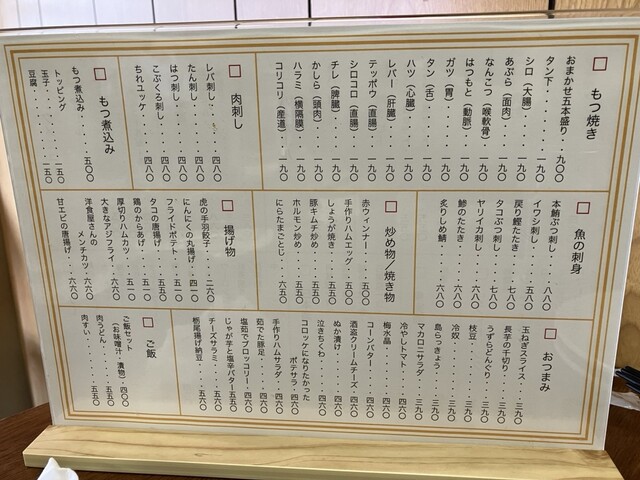 □ もつ焼き
おまかせ五本盛り・・九〇〇
タン下・・・・・・・一九〇
シロ(大腸)・・・・一九〇
あぶら(面肉)・・・一九〇
なんこつ(喉軟骨)・一九〇
はつもと(動脈)・・一九〇
ガツ(胃)・・・・・一九〇
タン(舌)・・・・・一九〇
ハツ(心臓)・・・・一九〇
レバー(肝臓)・・・一九〇
テッポウ(直腸)・・一九〇
シロコロ(直腸)・・一九〇
チレ(脾臓)・・・・一九〇
かしら(頭肉)・・・一九〇
ハラミ(横隔膜)・・一九〇
コリコリ(産道)・・一九〇
□ 肉刺し
レバ刺し・・・・四八〇
たん刺し・・・・四八〇
はつ刺し・・・・四八〇
こぶくろ刺し・・四八〇
ちれユッケ・・・四八〇
□ もつ煮込み
もつ煮込み・・・五〇〇
トッピング
玉子・・・・・・一五〇
豆腐・・・・・・一五〇
□ 魚の刺身
本鮪ぶつ刺し・・八八〇
イワシ刺し・・・五八〇
戻り鰹たたき・・七八〇
タコぶつ刺し・・七八〇
ヤリイカ刺し・・六八〇
鯵のたたき・・・六八〇
炙りしめ鯖・・・六八〇
□ 炒め物/焼き物
赤ウィンナー・・五〇〇
手作りハムエッグ・五〇〇
しょうが焼き・・五五〇
豚キムチ炒め・・五五〇
ホルモン炒め・・五五〇
にらたまごとじ・・六五〇
□ 揚げ物
虎の手羽餃子・・二六〇
にんにくの丸揚げ・四一〇
フライドポテト・・五一〇
鶏のからあげ・・五一〇
タコの唐揚げ・・五六〇
厚切りハムカツ・・六一〇
大きなアジフライ・六六〇
洋食屋さんの
メンチカツ・・六六〇
甘エビの唐揚げ・・六六〇
□ おつまみ
玉ねぎスライス・・三九〇
長芋の千切り・・三九〇
うずらどんぐり・・三九〇
枝豆・・・・・・三九〇
冷奴・・・・・・三九〇
島らっきょう・・三九〇
マカロニサラダ・・三九〇
冷やしトマト・・四六〇
梅水晶・・・・・四六〇
コーンバター・・四六〇
酒盗クリームチーズ・四六〇
ぬか漬け・・・・四六〇
泣きちくわ・・・四六〇
コロッケになりたかった
ポテサラ・・四六〇
手作りハムサラダ・四六〇
茹でた豚足・・・四六〇
塩茹でブロッコリー・四六〇
じゃが芋と塩辛バター五五〇
チーズサラミ・・五六〇
栃尾揚げ納豆・・五六〇
□ ご飯
ご飯セット
(お味噌汁・漬物)・四〇〇
肉うどん・・・・五五〇
肉すい・・・・・五五〇